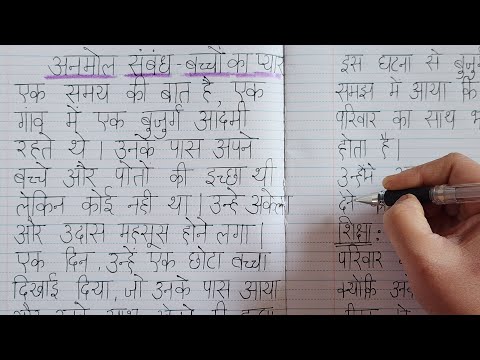 अनमोल संबंध - बच्चों का प्यार
एक समय की बात है, एक
गाव में एक बुजुर्ग आदमी
रहते थे। उनके पास अपने
बच्चे और पोतो की इच्छा थी
लेकिन कोई नही था। उन्हे अकेला
और उदास महसूस होने लगा।
एक दिन, उन्हें एक छोटा बच्चा
दिखाई दिया, जो उनके पास आया
इस घटना से बुजुर्ग
समझ में आया कि
परिवार का साथ
होता है।
उन्होंने
शिक्षा:
परिवार
क्योकि